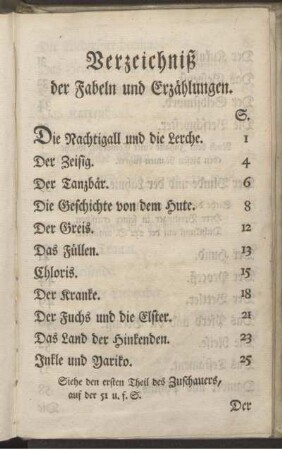 Verzeichniß
der Fabeln und Erzählungen.
S.
Die Nachtigall und die Lerche. 1
Der Zeisig. 4
Der Tanzbär. 6
Die Geschichte von dem Hute. 8
Der Greis. 12
Das Füllen. 13
Chloris. 15
Der Kranke. 18
Der Fuchs und die Elster. 21
Das Land der Hinkenden. 23
Inkle und Yariko. 25
Siehe den ersten Theil des Zuschauers,
auf der 51 u. f. S.
Der